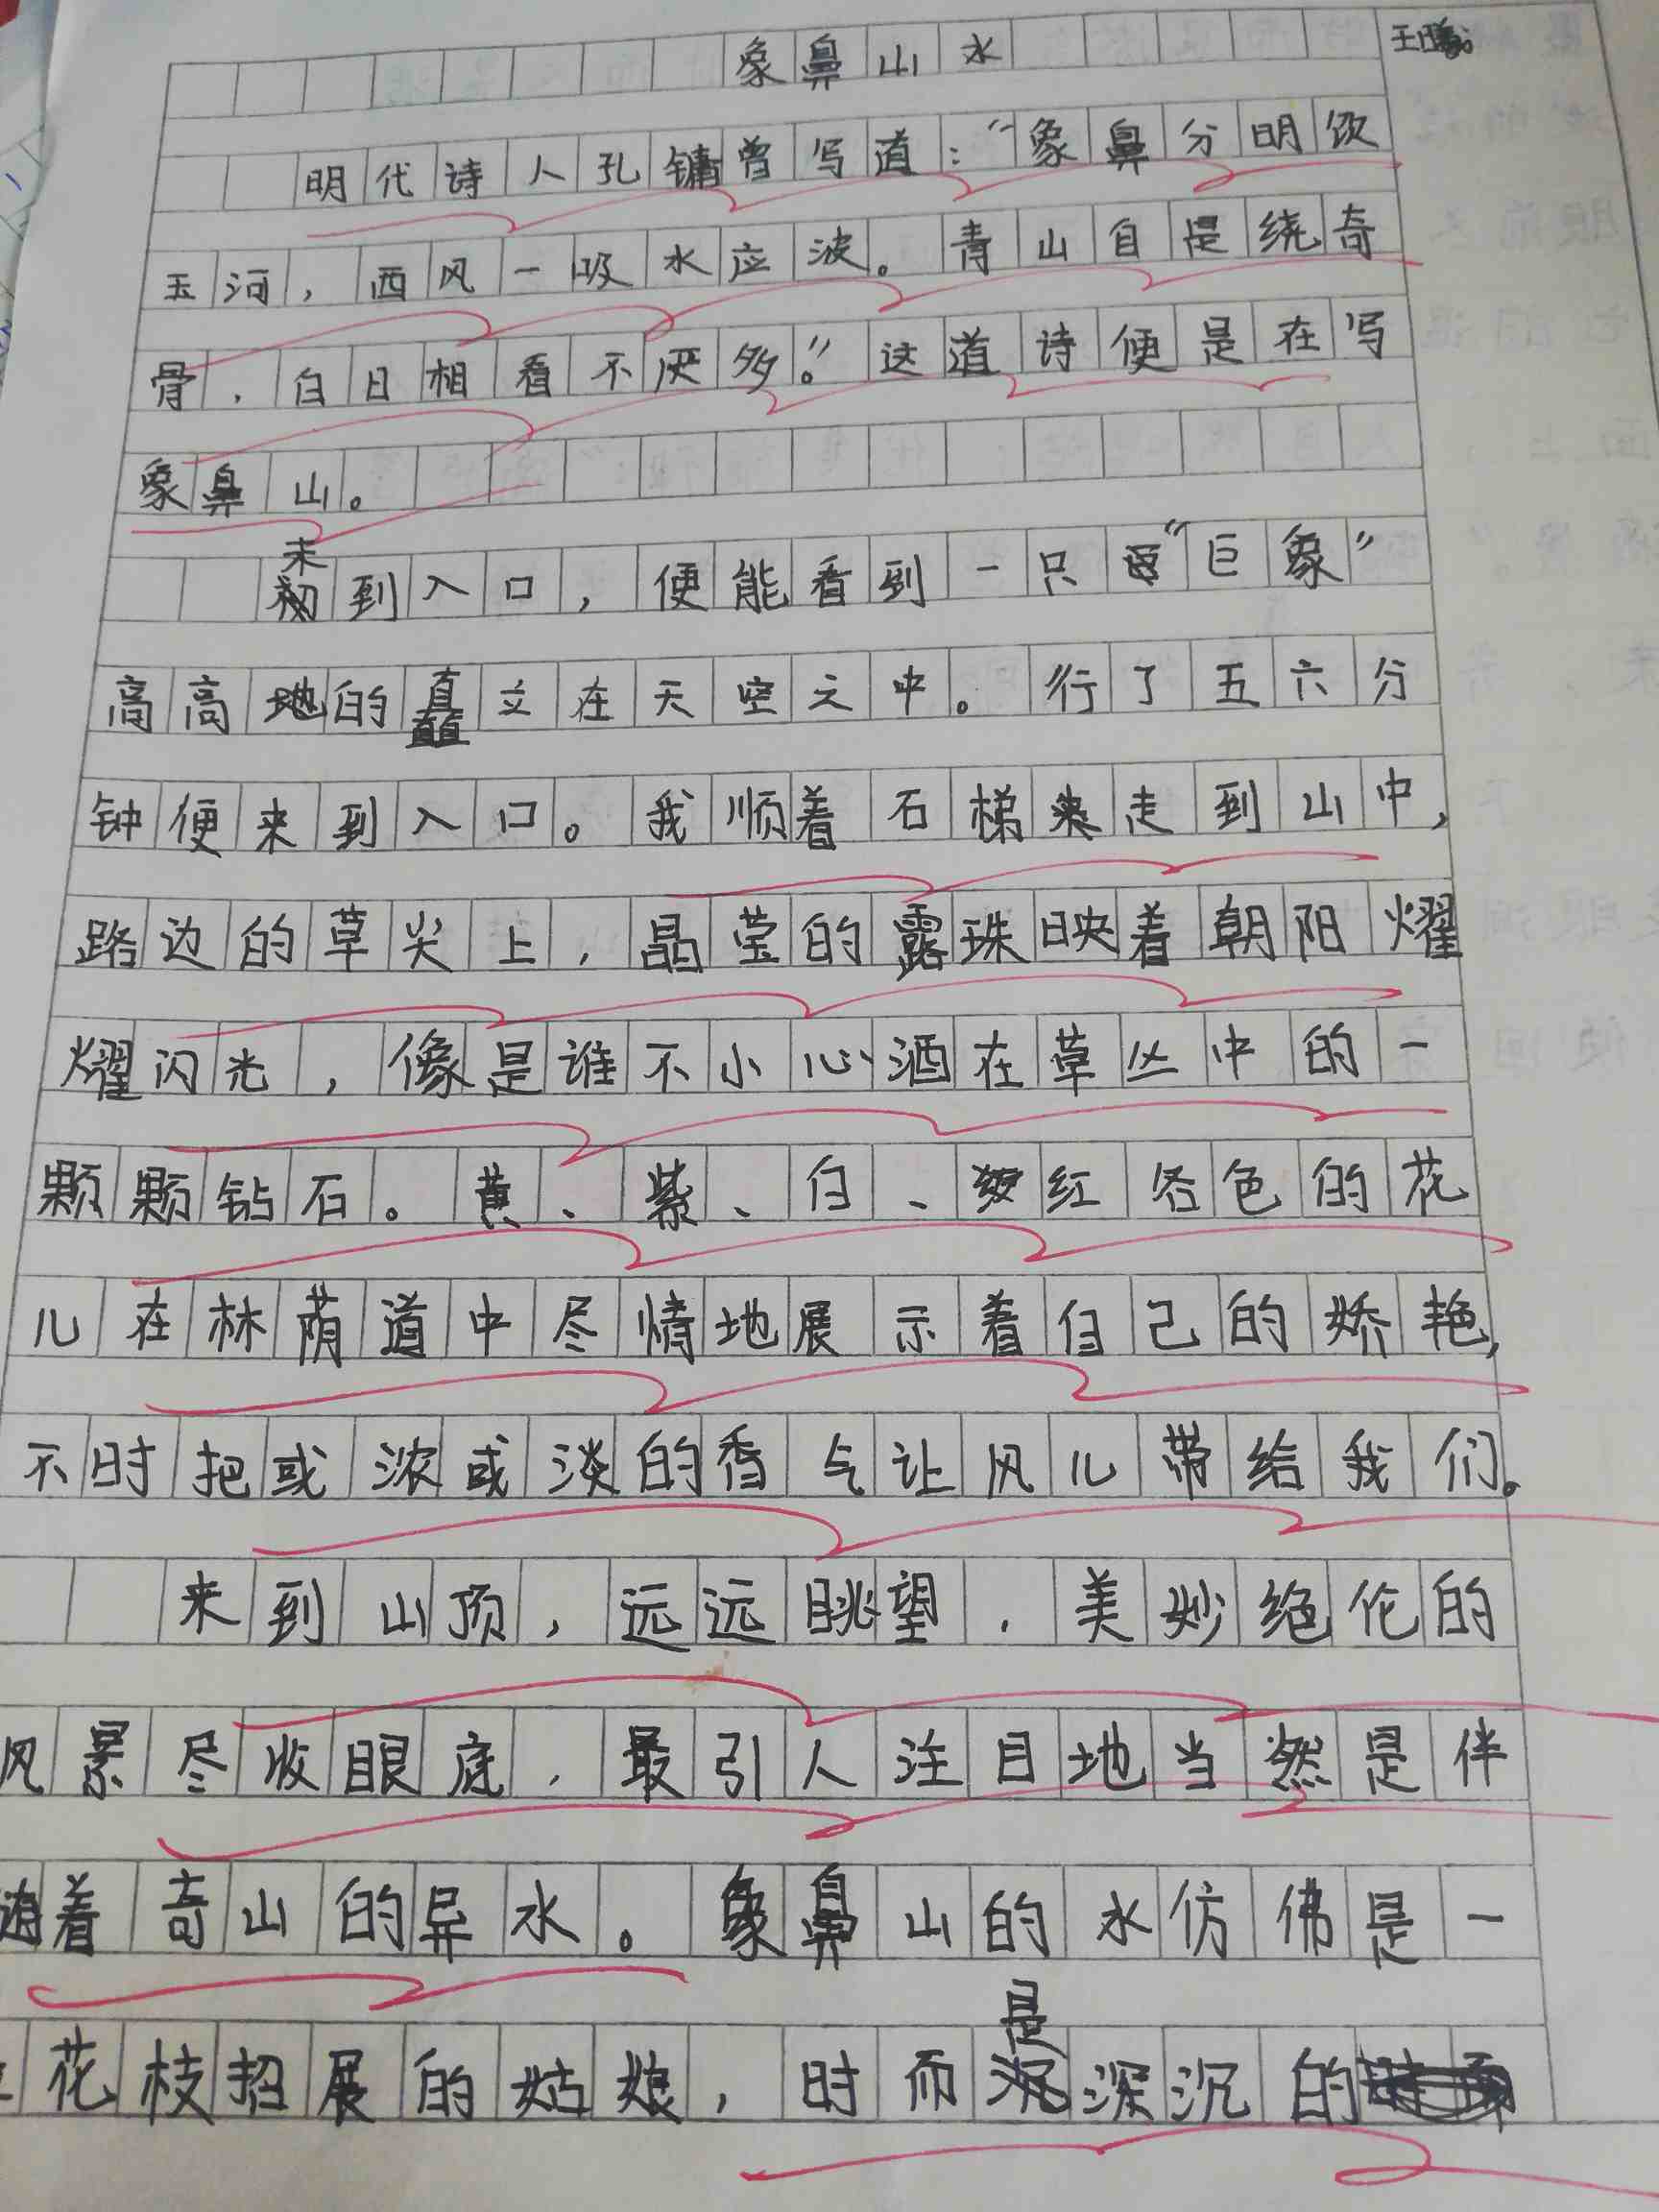 象鼻山水
明代诗人孔镛曾写道:“象鼻分明饮
玉河,西风一吸水应波。青山自是绕奇
骨,白日相看不厌多。”这道诗便是在写
象鼻山。
未到入口,便能看到一只“巨象”
高高地的矗立在天空之中。行了五六分
钟便来到入口。我顺着石梯来走到山中,
路边的草尖上,晶莹的露珠映着朝阳耀
耀闪光,像是谁不小心洒在草丛中的一
颗颗钻石。黄、紫、白、红各色的花
儿在林荫道中尽情地展示着自己的娇艳,
不时把或浓或淡的香气让风儿带给我们。
来到山顶,远远眺望,美妙绝伦的
风景尽收眼底,最引人注目地当然是伴
随着奇山的异水。象鼻山的水仿佛是一
花枝招展的姑娘,时而是深沉的